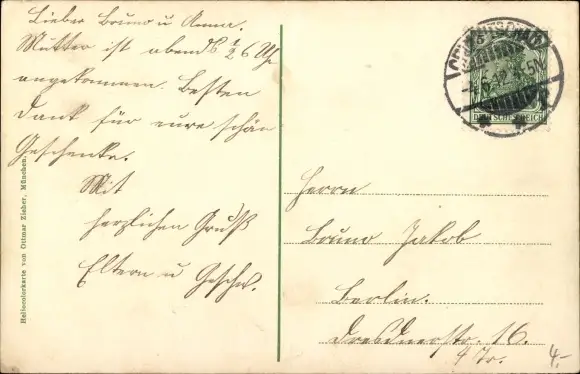 Lieber Bruno u Anna.
Mutter ist abends 1/2 6 Uhr
angekommen. Besten
Dank für eure schön
Geschenke.
Mit
herzlichen Gruß
Eltern u Geschw.
Heliocolorkarte von Ottmar Zieher, München.
5
DEUTSCHES REICH
Herrn
Bruno Jakob
Berlin.
Dresdnerstr. 16.
4 Tr.
4,-